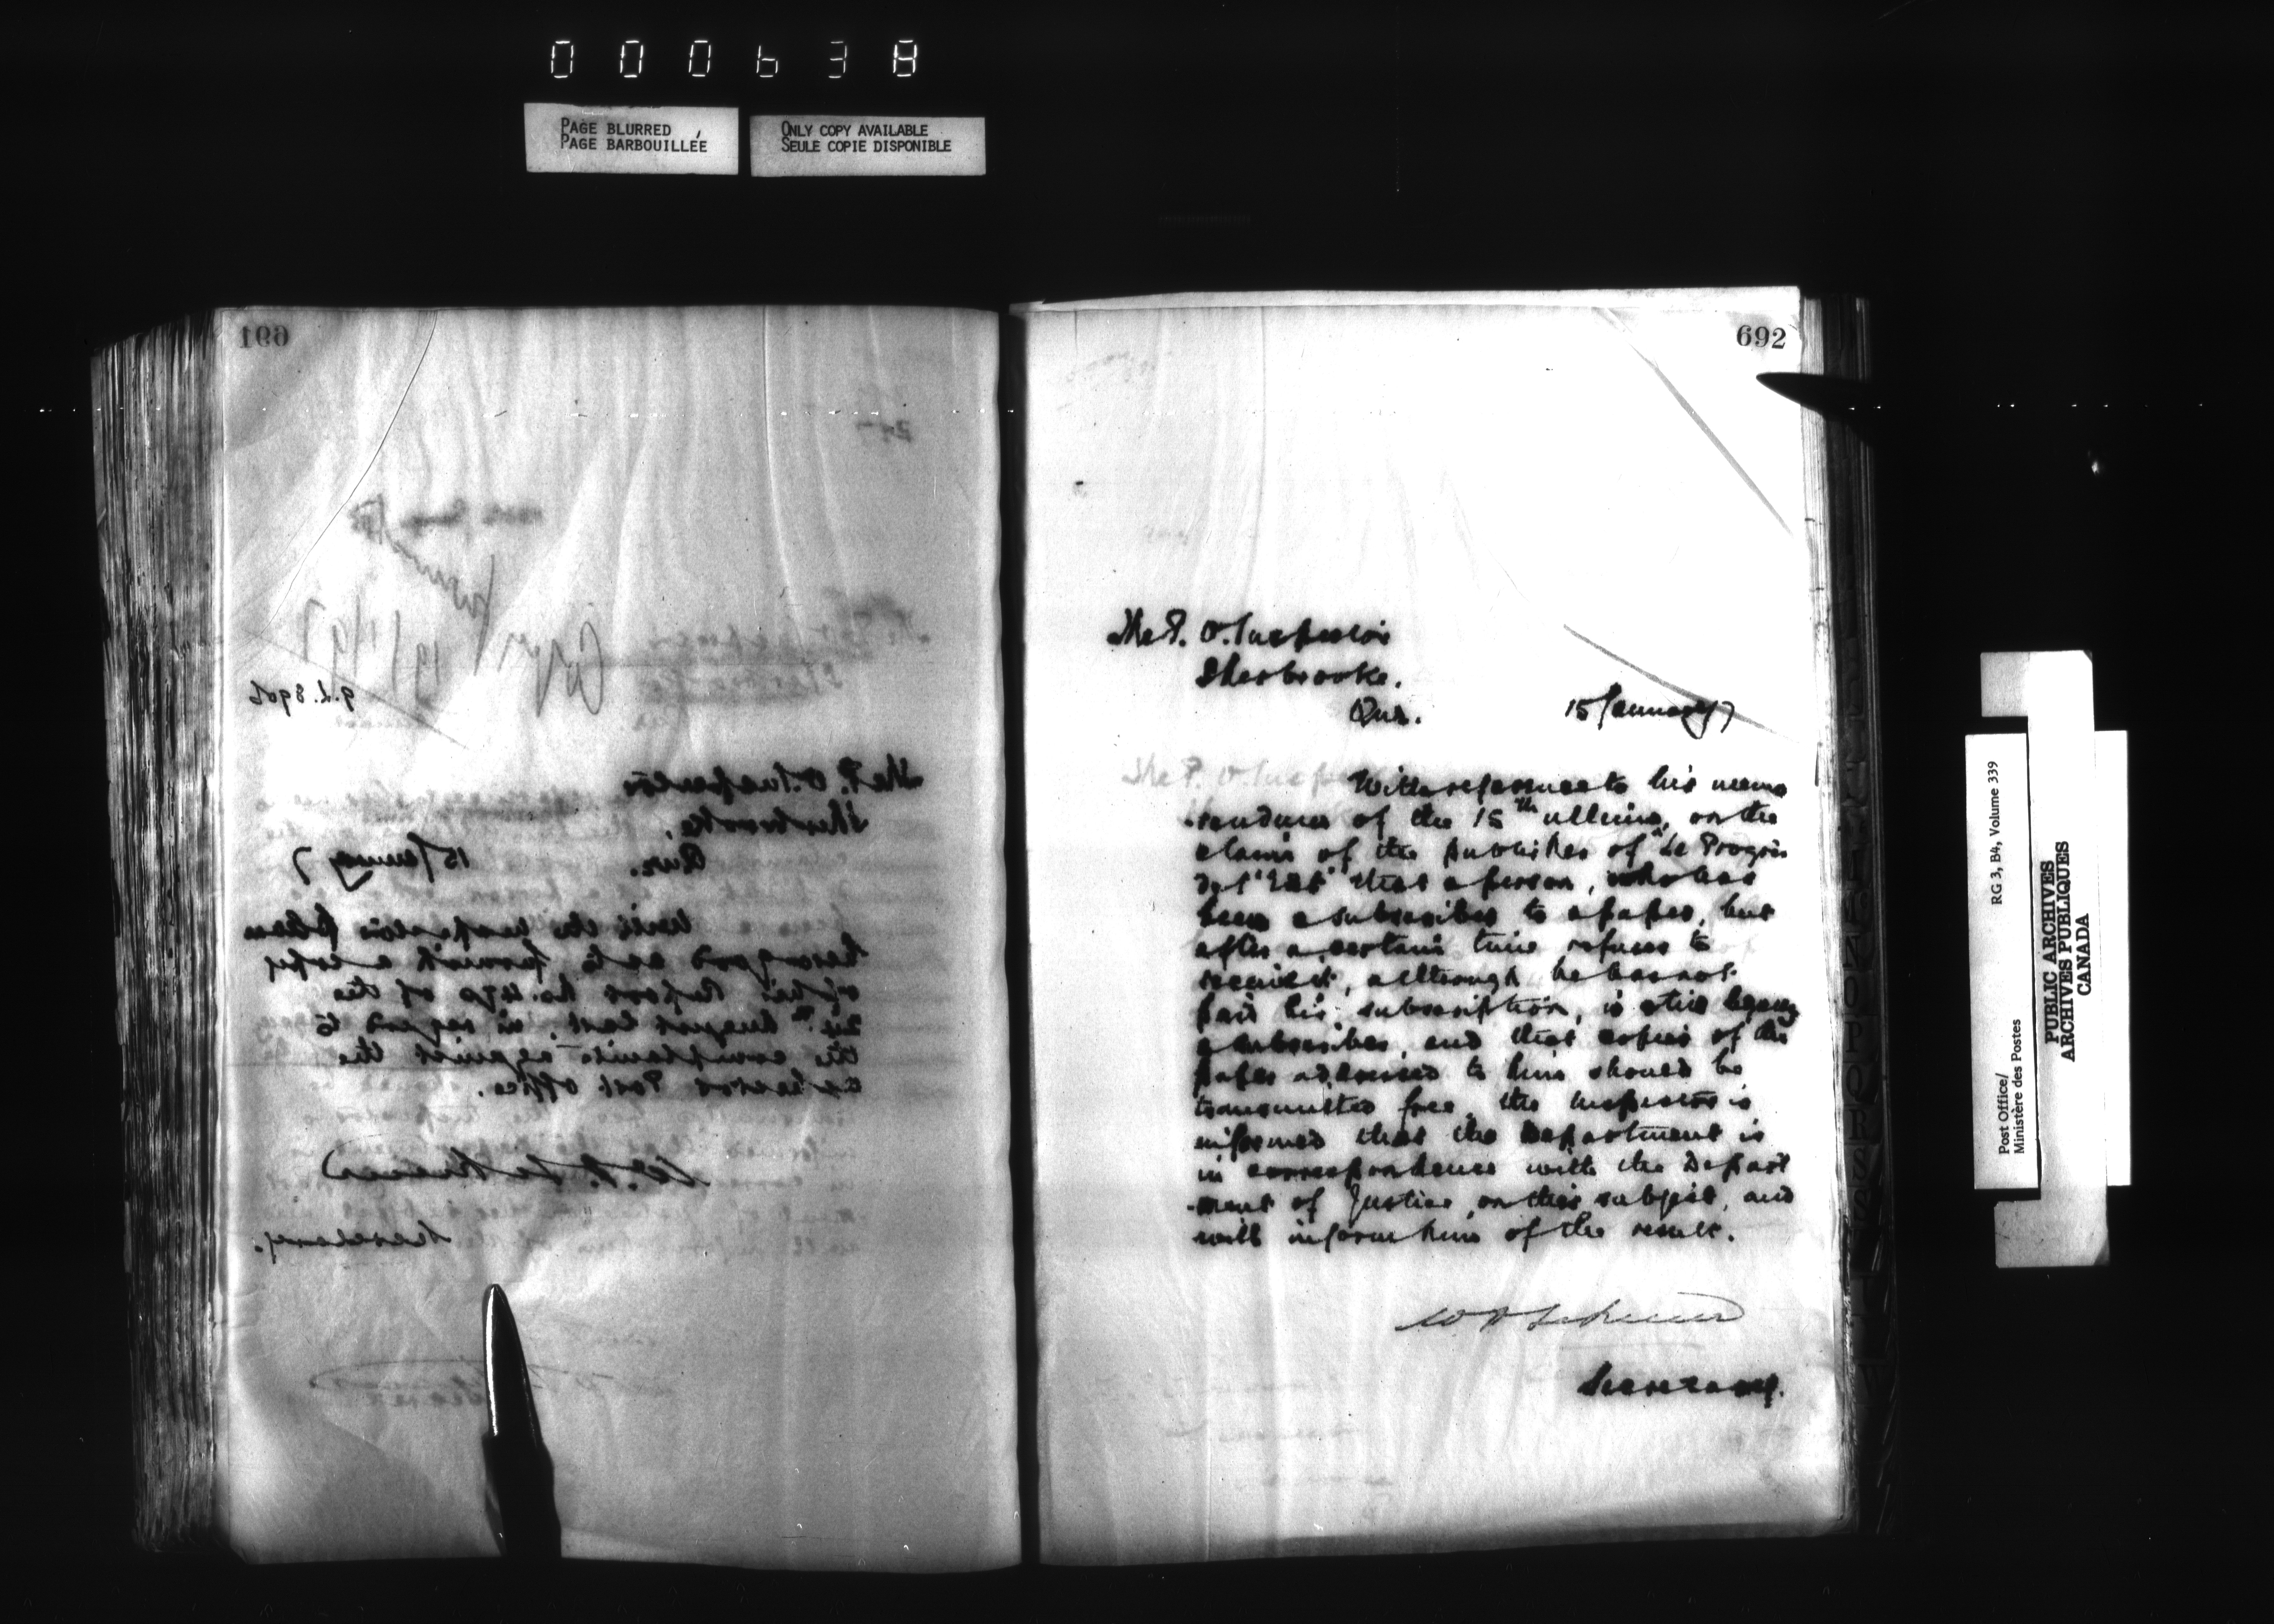 000638
PAGE BLURRED
PAGE BARBOUILLÉE
ONLY COPY AVAILABLE
SEULE COPIE DISPONIBLE
691
Copy
The P. O. Inspector
Sherbrooke,
Que. 15 January 7
Will the Inspector please
be so good as to furnish a copy
of his Report No. of the
August last, in regard to
the complaints against the
Post Office.
Secretary.
692
The P. O. Inspector
Sherbrooke.
Que. 15 January 7
With reference to his memo
-randum of the 15th ultimo, on the
claim of the publisher of "Le Progrès
de l'Est" that a person, who has
been a subscriber to a paper, but
after a certain time refuses to
receive it, although he has not
paid his subscription, is still legally
a subscriber, and that copies of the
paper addressed to him should be
transmitted free, the Inspector is
informed that the Department is
in correspondence with the Depart
-ment of Justice, on this subject, and
will inform him of the result.
Secretary.
Post Office/
Ministère des Postes
RG 3, B4, Volume 339
PUBLIC ARCHIVES
ARCHIVES PUBLIQUES
CANADA